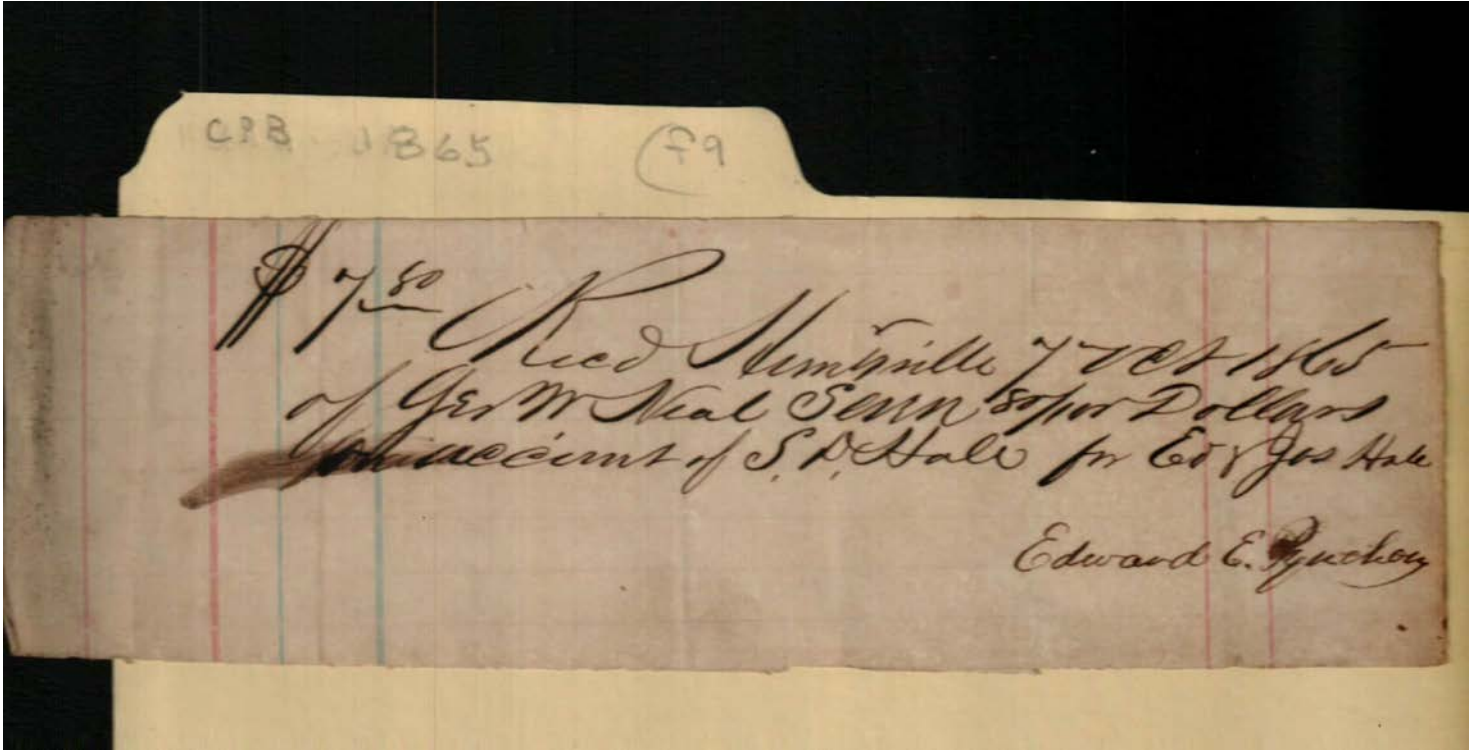 CPB 1865 (F9
$7 80 Recd Huntsville 7 Oct 1865
of Geo W Neal Seven 80/100 Dollars
on account of S. D. Hale for Ed & Jos Hale
Edward E. Pynchon